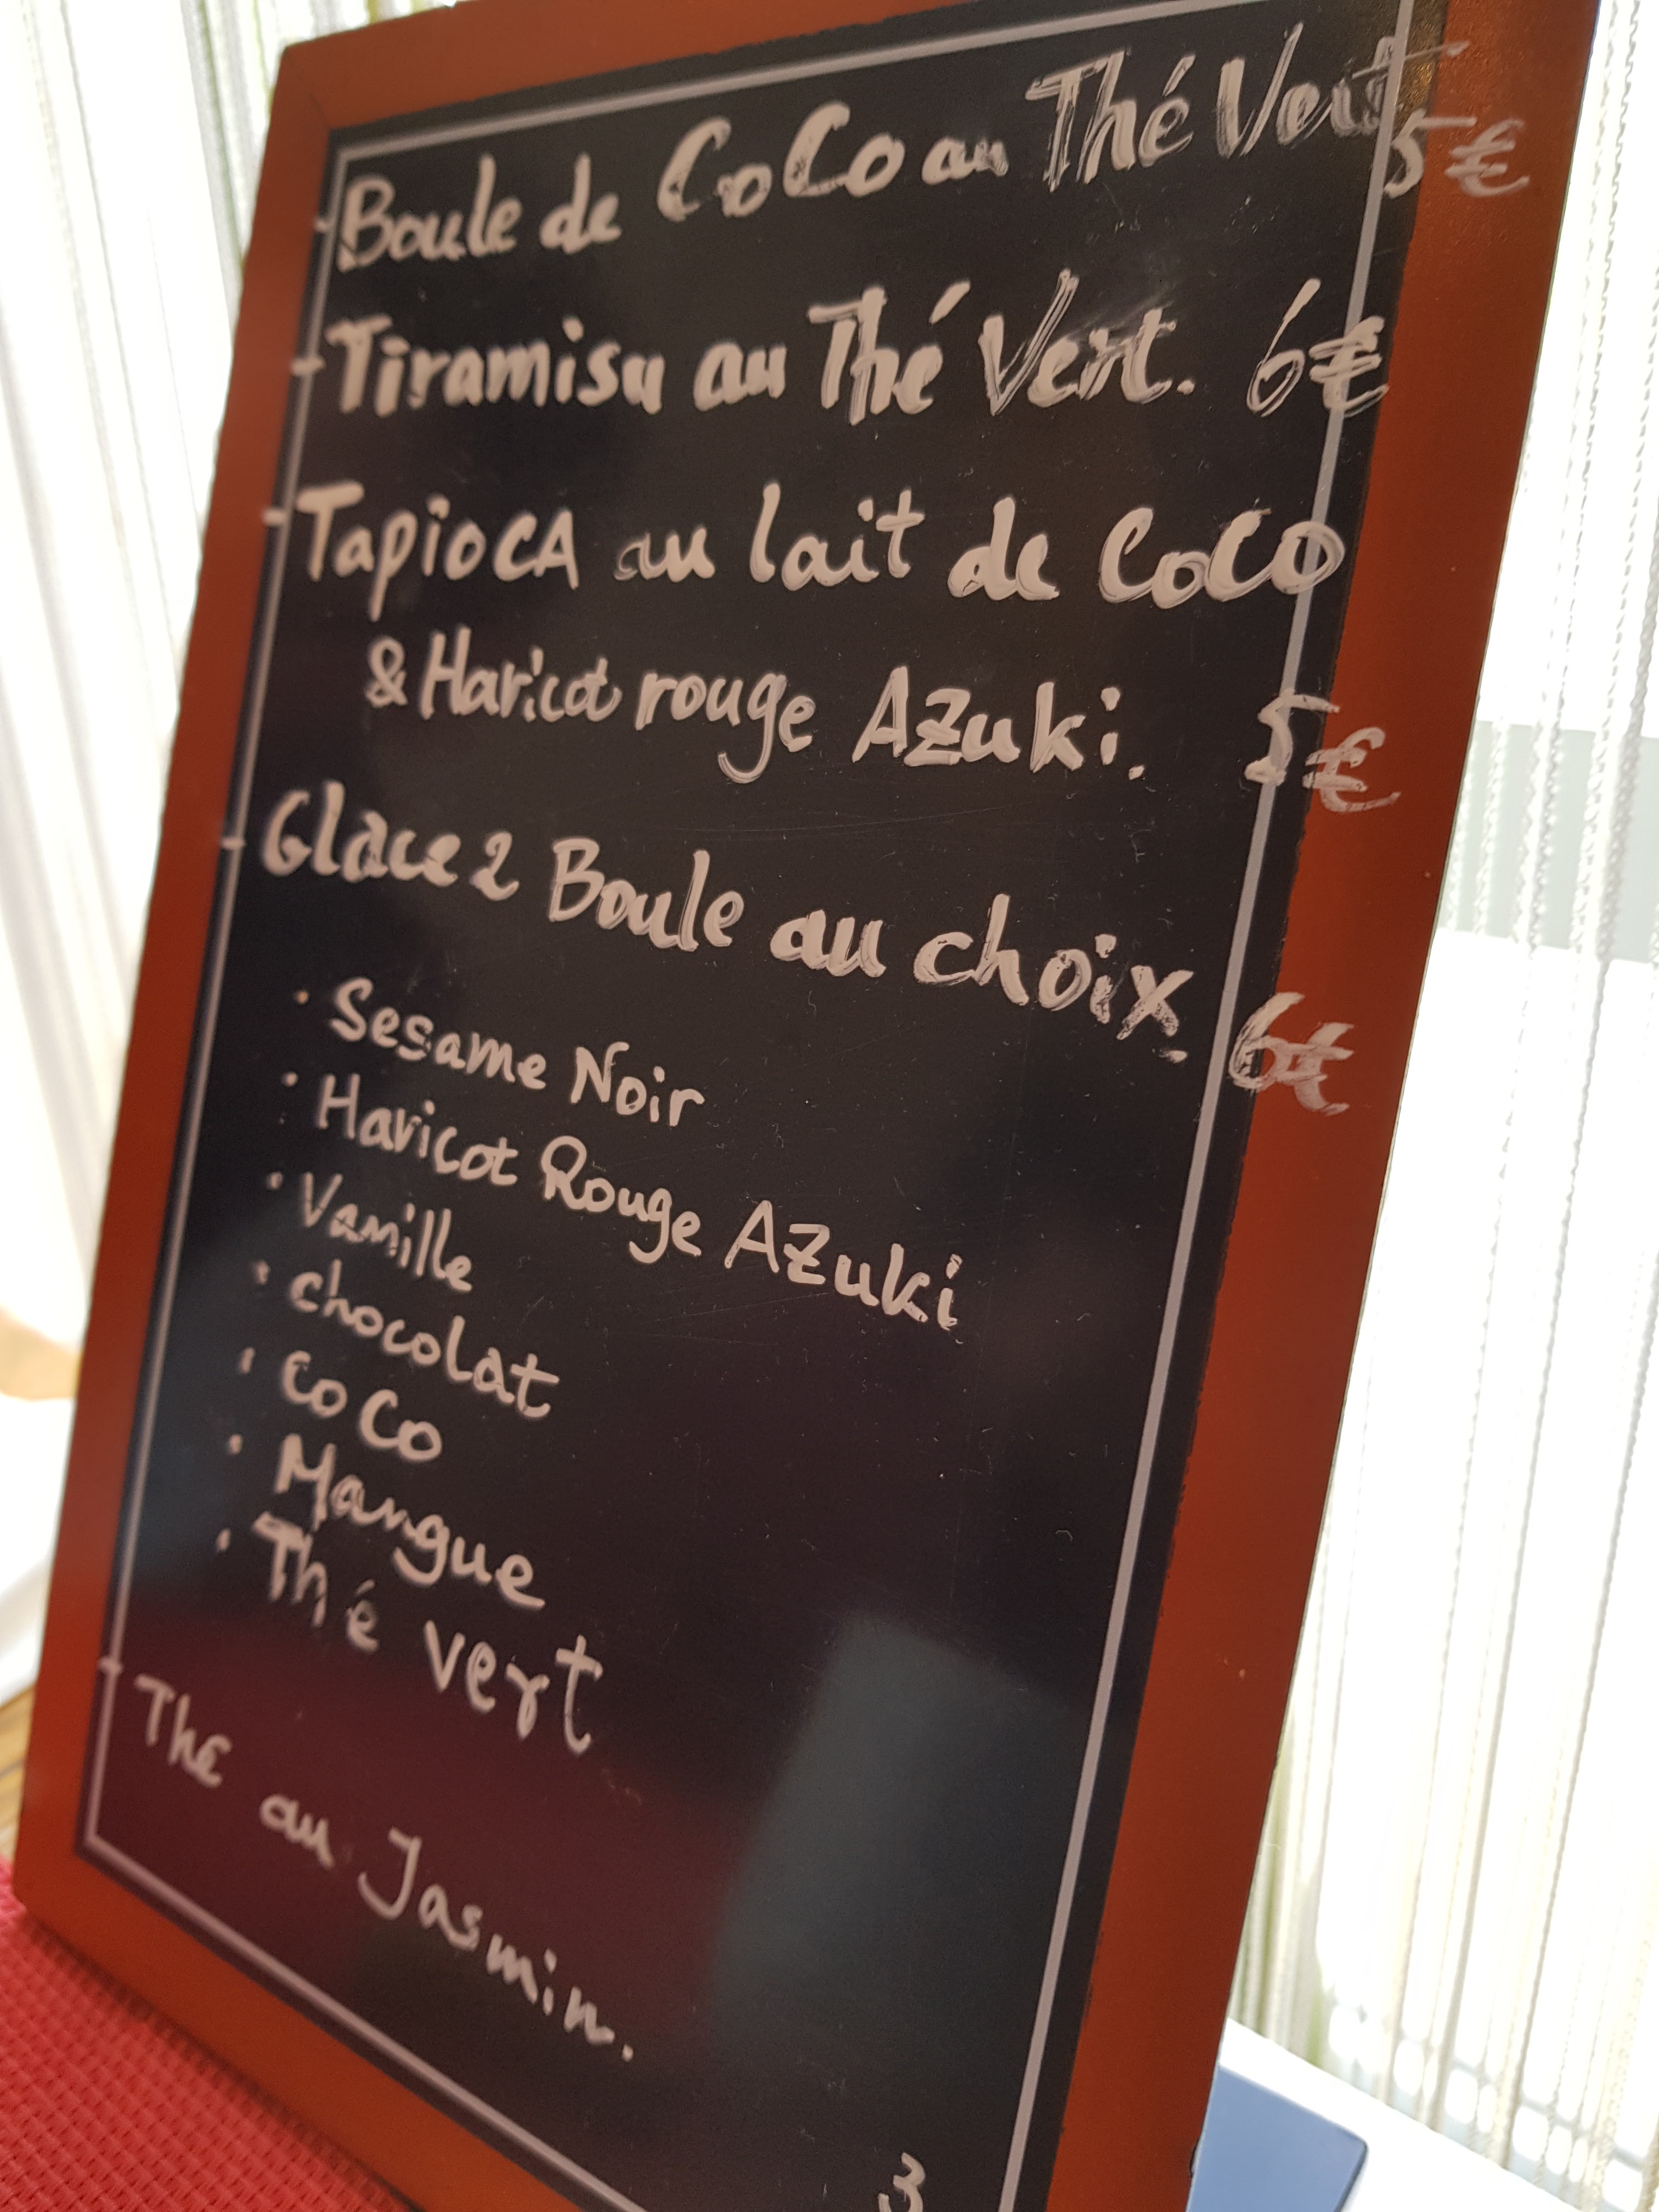 - Boule de CoCo au Thé Vert 5€
- Tiramisu au Thé Vert. 6€
- TapiocA au lait de CoCo
& Haricot rouge Azuki. 5€
- Glace 2 Boule au choix. 6€
· Sesame Noir
· Haricot Rouge AZuki
· Vanille
· chocolat
· CoCo
· Mangue
· Thé vert
- Thé au Jasmin.
3